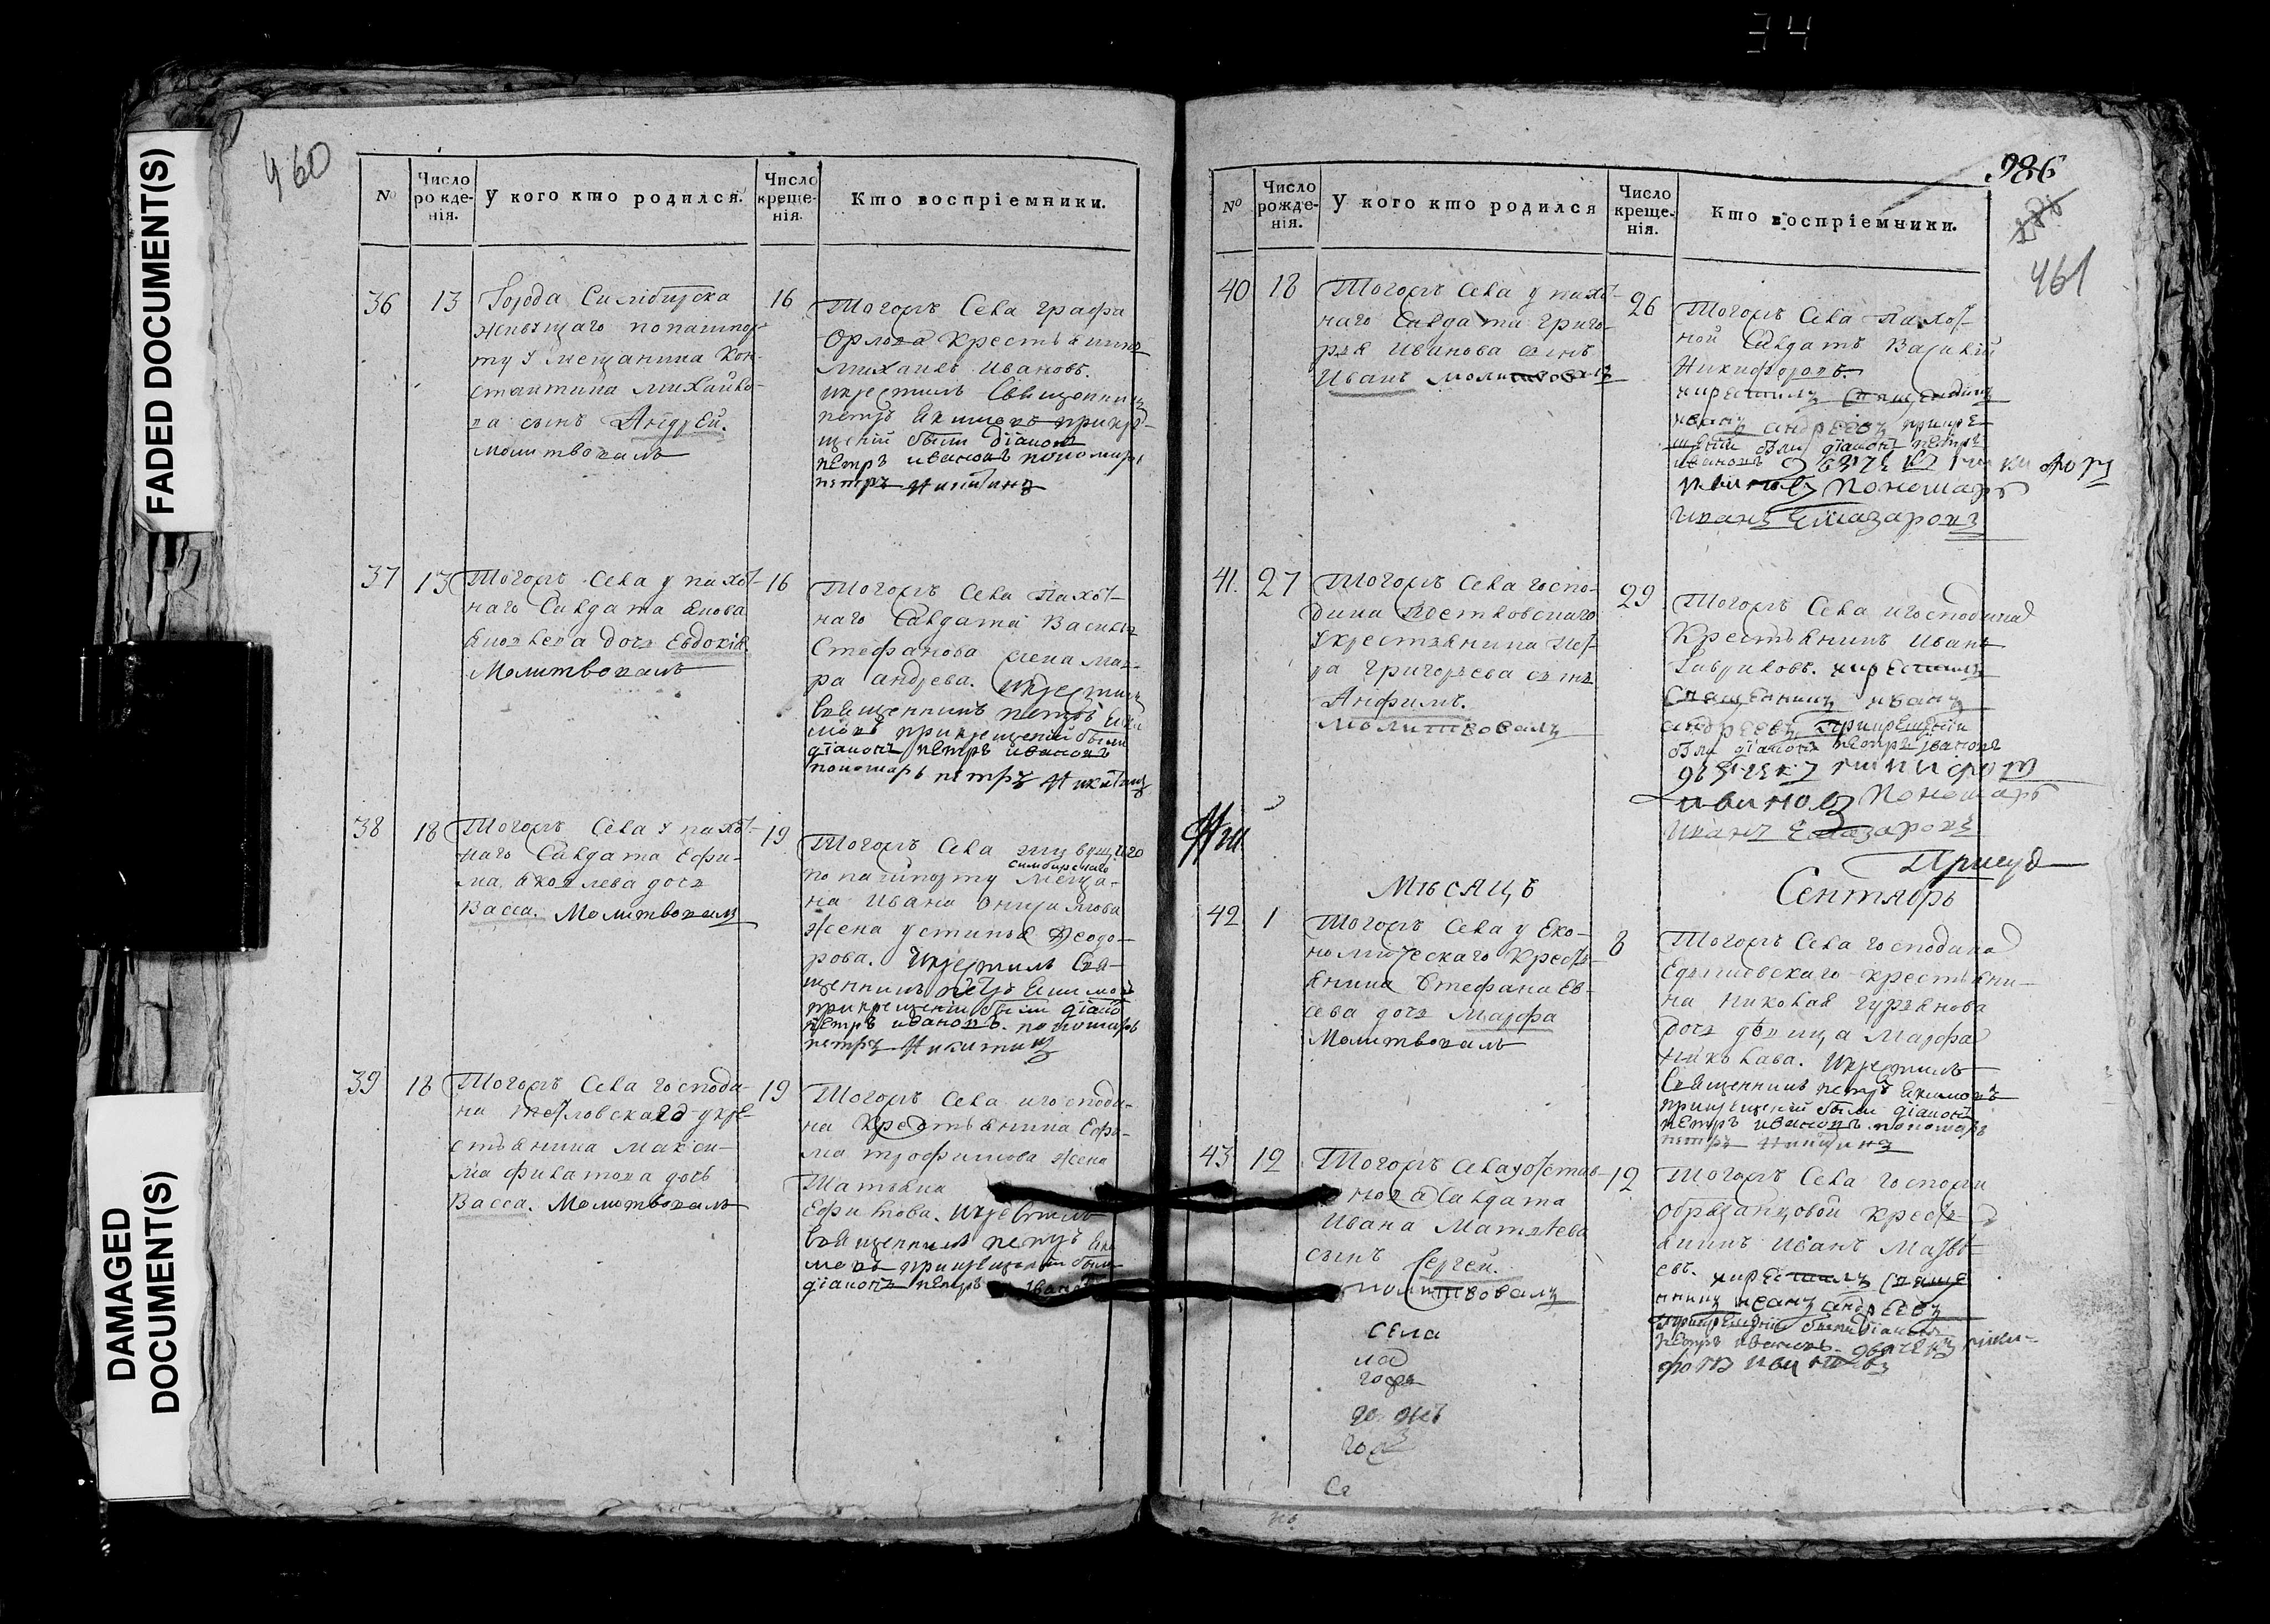 34
FADED DOCUMENT(S)
DAMAGED
DOCUMENT(S)
460
№
Число рожденія.
У кого кто родился.
Число крещенія.
Кто воспріемники.
36
13
Города Симбирска
живущаго по пашпор-
ту у мещанина Кон-
стантина Михайло-
ва сынъ Андрей.
молитвовалъ
16
Тогожъ Села графа
Орлова крестьянинъ
Михаилъ Ивановъ.
и крестилъ Священникъ
петръ Екимовъ при кре-
щеніи были діаконъ
петръ ивановъ пономарь
петръ Никитинъ
37
13
Тогожъ Села у пахот-
наго Салдата Якова
Яковлева дочь Евдокія.
Молитвовалъ
16
Тогожъ Села Пахот-
наго Салдата Василья
Стефанова жена Мав-
ра андрева. и крестилъ
Священникъ петръ Еки
мовъ при крещеніи были
діаконъ петръ ивановъ
пономарь петръ Никитинъ
38
18
Тогожъ Села у пахот-
наго Салдата Ефи-
ма Яковлева дочь
Васса. Молитвовалъ
19
Тогожъ Села живущаго
симбирскаго
по пашпорту Меща-
на Ивана
жена устинья Феодо-
рова. и крестилъ Свя-
щенникъ петръ Екимовъ
при крещеніи были діаконъ
петръ ивановъ. пономарь
петръ Никитинъ
39
18
Тогожъ Села господи-
на у кре-
стьянина Макси-
ма филатова дочь
Васса. Молитвовалъ
19
Тогожъ Села и господи-
на Крестьянина Ефи-
ма трофимова жена
Татьяна
Ефимова. и крестилъ
Священникъ петръ Еки
мовъ при крещеніи были
діаконъ петръ ивановъ
986
461
№
Число рожденія.
У кого кто родился
Число крещенія.
Кто воспріемники.
40
18
Тогожъ Села у пахот-
наго Салдата Григо-
рья Иванова сынъ
Иванъ молитвовалъ
26
Тогожъ Села Пахот-
ной Салдатъ Василій
Никифоровъ.
и крестилъ Священникъ
иванъ андреевъ при кре-
щеніи были діаконъ петръ
ивановъ дьячекъ никифоръ
ивановъ пономарь
Иванъ Елиазаровъ
41.
27
Тогожъ Села госпо-
дина
у крестьянина Пет-
ра Григорьева сынъ
Анфимъ.
молитвовалъ
29
Тогожъ Села и господина
Крестьянинъ Иванъ
Гавриловъ. и крестилъ
Священникъ иванъ
андреевъ при крещеніи
были діаконъ петръ ивановъ
дьячекъ никифоръ
ивановъ пономарь
Иванъ Елиазаровъ
Мѣсяцъ
Сентябрь
42
1
Тогожъ Села у Еко-
номическаго Кресть-
янина Стефана Ев-
сева дочь Марфа
Молитвовалъ
8
Тогожъ Села господина
крестьяни-
на Николая Гурьянова
дочь девица Марфа
Николава. и крестилъ
Священникъ петръ Екимовъ
при крещеніи были діаконъ
петръ ивановъ. пономарь
петръ Никитинъ
43
12
Тогожъ Села у отстав-
наго Салдата
Ивана Матвѣева
сынъ Сергей.
молитвовалъ
12
Тогожъ Села госпожи
образанцовой кресть-
янинъ Иванъ Матвѣ-
евъ. и крестилъ Свяще
нникъ иванъ андреевъ
при крещеніи были діаконъ
петръ ивановъ. дьячекъ ники-
форъ ивановъ
села